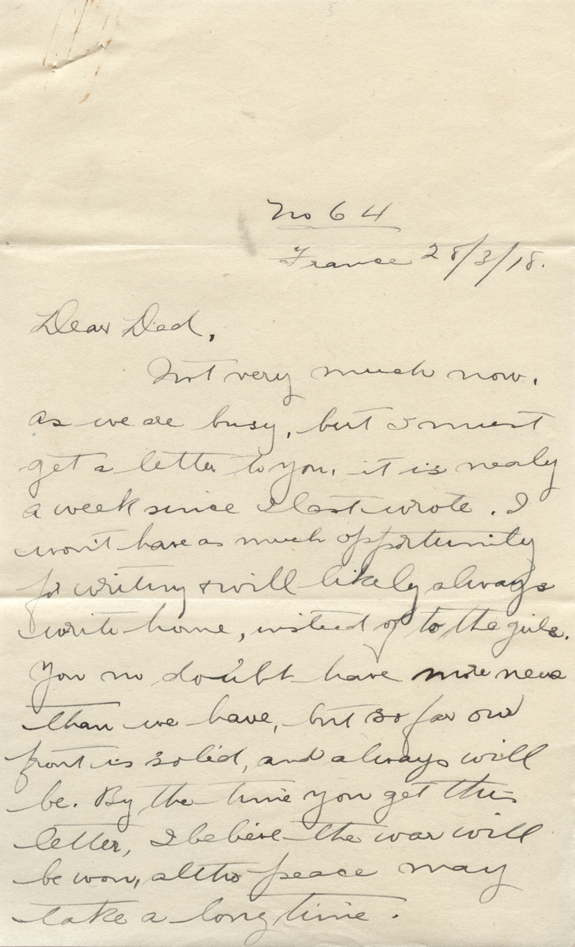 No 64
France 28/3/18.
Dear Dad,
Not very much now,
as we are busy, but I must
get a letter to you, it is nearly
a week since I last wrote. I
won't have as much opportunity
for writing & will likely always
write home, instead of to the girls.
You no doubt have more news
than we have, but so far our
front is solid, and always will
be. By the time you get this
letter, I believe the war will
be won, altho peace may
take a long time.